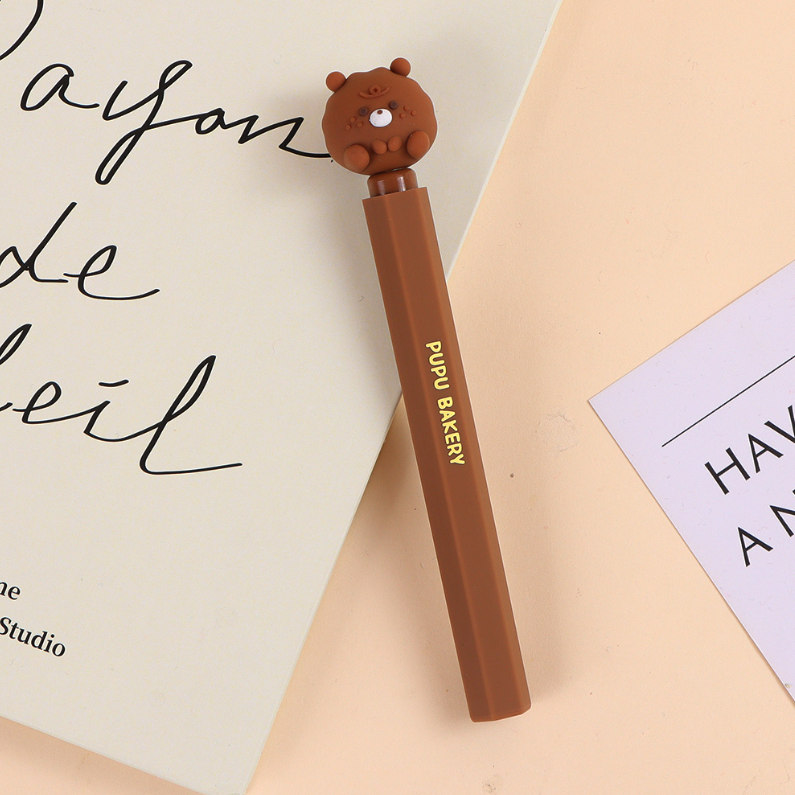 Rayon
de
leil
Studio
PUPU BAKERY
HAV
A N